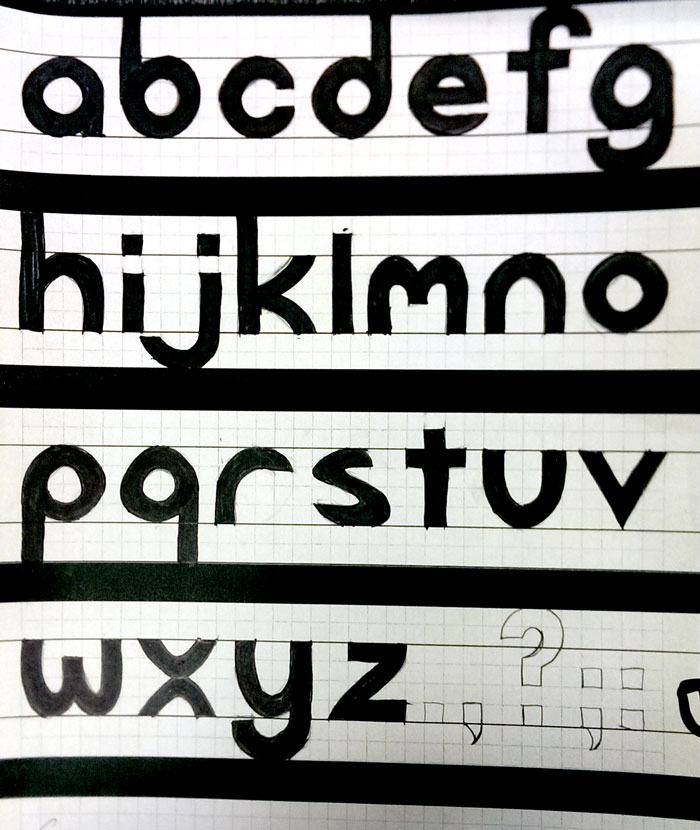 abcdefg
hijklmno
pqrstuv
wxyz.,?;: